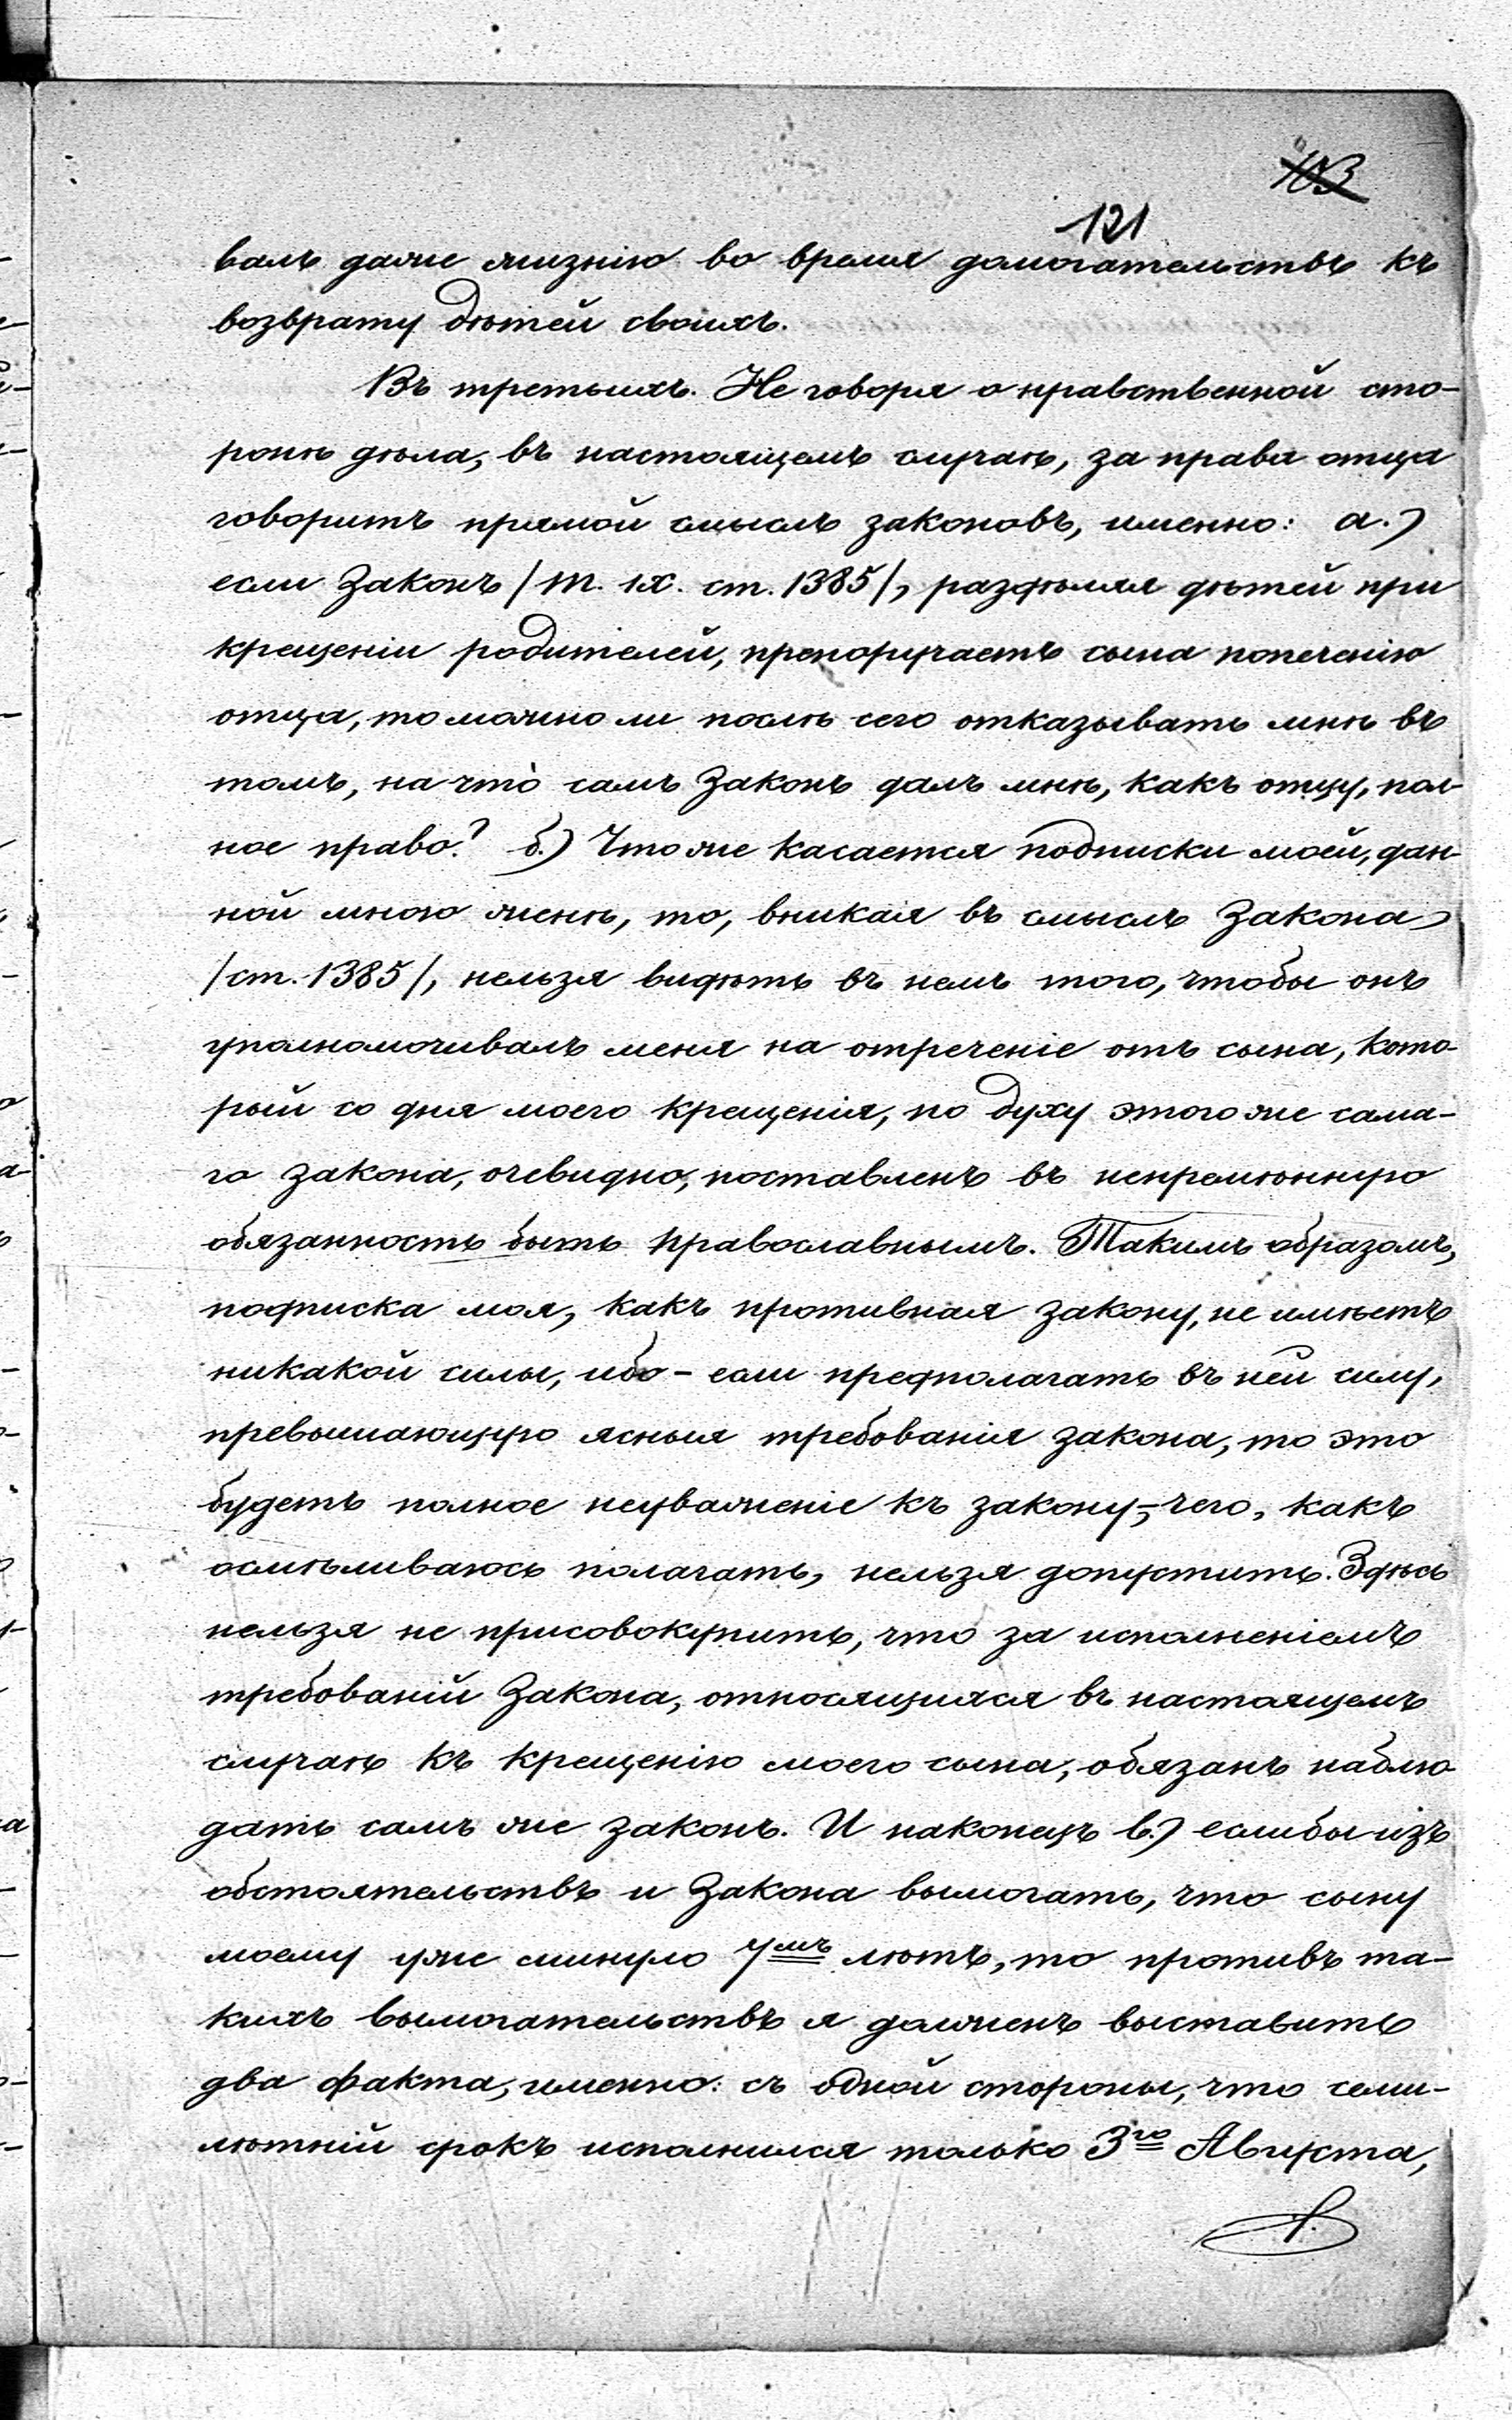 103
121
валъ даже жизнію во время домогательствъ къ
возврату дѣтей своихъ.
Въ третьихъ. Не говоря о нравственной сто-
ронѣ дѣла, въ настоящемъ случаѣ, за права отца
говоритъ прямой смыслъ законовъ, именно: а.)
если Законъ /т. IX. ст. 1385/, раздѣляя дѣтей при
крещеніи родителей, препоручаетъ сына попеченію
отца, то можно ли послѣ сего отказывать мнѣ въ
томъ, на что̀ самъ Законъ далъ мнѣ, какъ отцу, пол-
ное право? б.) Что же касается подписки моей, дан-
ной мною женѣ, то, вникая въ смыслъ Закона,
/ст. 1385/, нельзя видѣть въ немъ того, чтобы онъ
уполномочивалъ меня на отреченіе отъ сына, кото-
рый со дня моего крещенія, по духу этого же сама-
го закона, очевидно, поставленъ въ непремѣнную
обязанность быть православнымъ. Такимъ образомъ,
подписка моя, какъ противная закону, не имѣетъ
никакой силы, ибо – если предполагать въ ней силу,
превышающую ясныя требованія закона, то это
будетъ полное неуваженіе къ закону, – чего, какъ
осмѣливаюсь полагать, нельзя допустить. Здѣсь
нельзя не присовокупить, что за исполненіемъ
требованій Закона, относящихся въ настоящемъ
случаѣ къ крещенію моего сына, обязанъ наблю
дать самъ же законъ. И наконецъ в.) если бы изъ
обстоятельствъ и Закона вымогать, что сыну
моему уже минуло 7мъ лѣтъ, то противъ та-
кихъ вымогательствъ я долженъ выставить
два факта, именно: съ одной стороны, что семи-
лѣтній срокъ исполнился только 3го Августа,